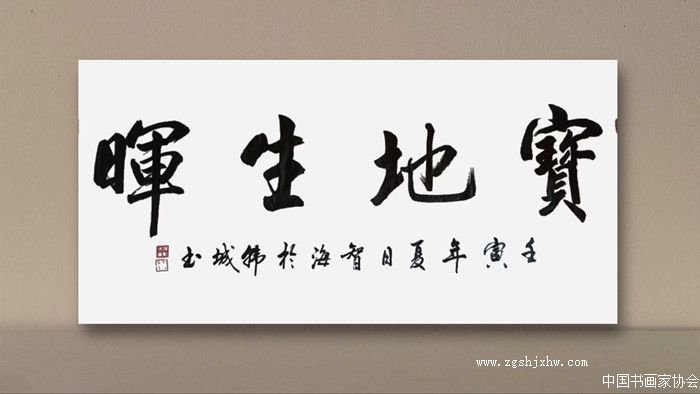 寶地生暉
壬寅年夏日智海於韩城书
www.zgshjxhw.com
中国书画家协会